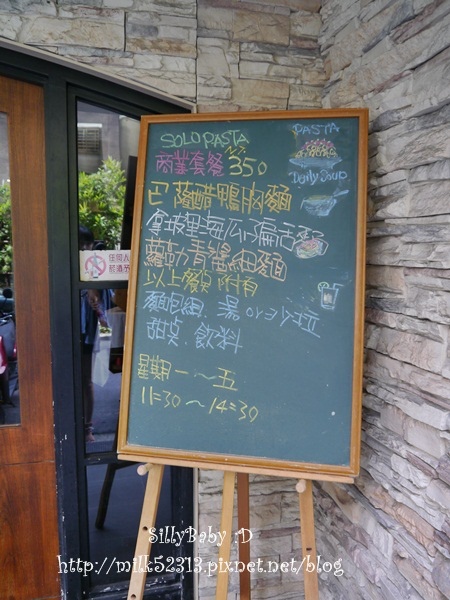 SOLO PASTA
商業套餐 NT: 350
PASTA
Daily Soup
巴薩醋鴨胸麵
拿坡里海瓜子扁舌麵
蘿勒青醬細麵
以上餐點附有
麵包組. 湯 or 沙拉
甜桌. 飲料
星期一～五
11:30～14:30
SillyBaby :D
http://milk52313.pixnet.net/blog